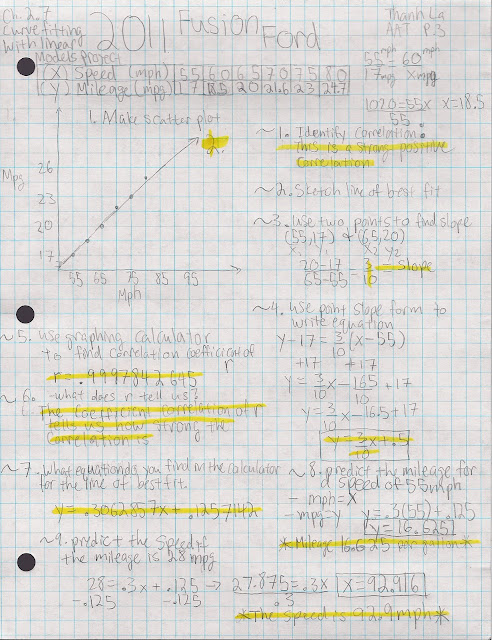 Ch. 2.7
Curve fitting
with linear
Models project
2011 Fusion Ford
Thanh La
AAT P.3
(X) Speed (mph) 55 60 65 70 75 80
(Y) Mileage (mpg) 17 18.5 20 21.6 23 24.7
55 mph = 60 mph
17 mpg x mpg
1020=55x x=18.5
55
1. Make scatter plot
2.
Mpg
26
23
20
17
55 65 75 85 95
Mph
~1. Identify Correlation.
This is a strong positive
Correlation
~2. Sketch line of best fit
~3. Use two points to find slope
(55,17) & (65,20)
x₁ y₁ x₂ y₂
20-17 = 3 - slope
65-55 10
~4. Use point slope form to
write equation
y-17 = 3/10 (x-55)
+17 +17
y = 3/10 x - 165/10 + 17
y = 3/10 x - 16.5 + 17
y = 3/10 x + .5
~5. use graphing calculator
to find correlation coefficient of
r
r = .9997842645
~6. -what does r tell us?
The coefficient correlation of r
tells us how strong the
correlation is
~7. What equation do you find in the calculator
for the line of best fit.
y = .3062857x + .1257142
~8. predict the mileage for
a speed of 55mph
- mph=x
- mpg=y y=.3(55)+.125
y=16.625
*Mileage 16.625 per gallon*
~9. predict the speed if
the mileage is 28 mpg
28=.3x+.125 → 27.875=.3x x=92.916
-.125 -.125 .3
*The speed is 92.9mph*